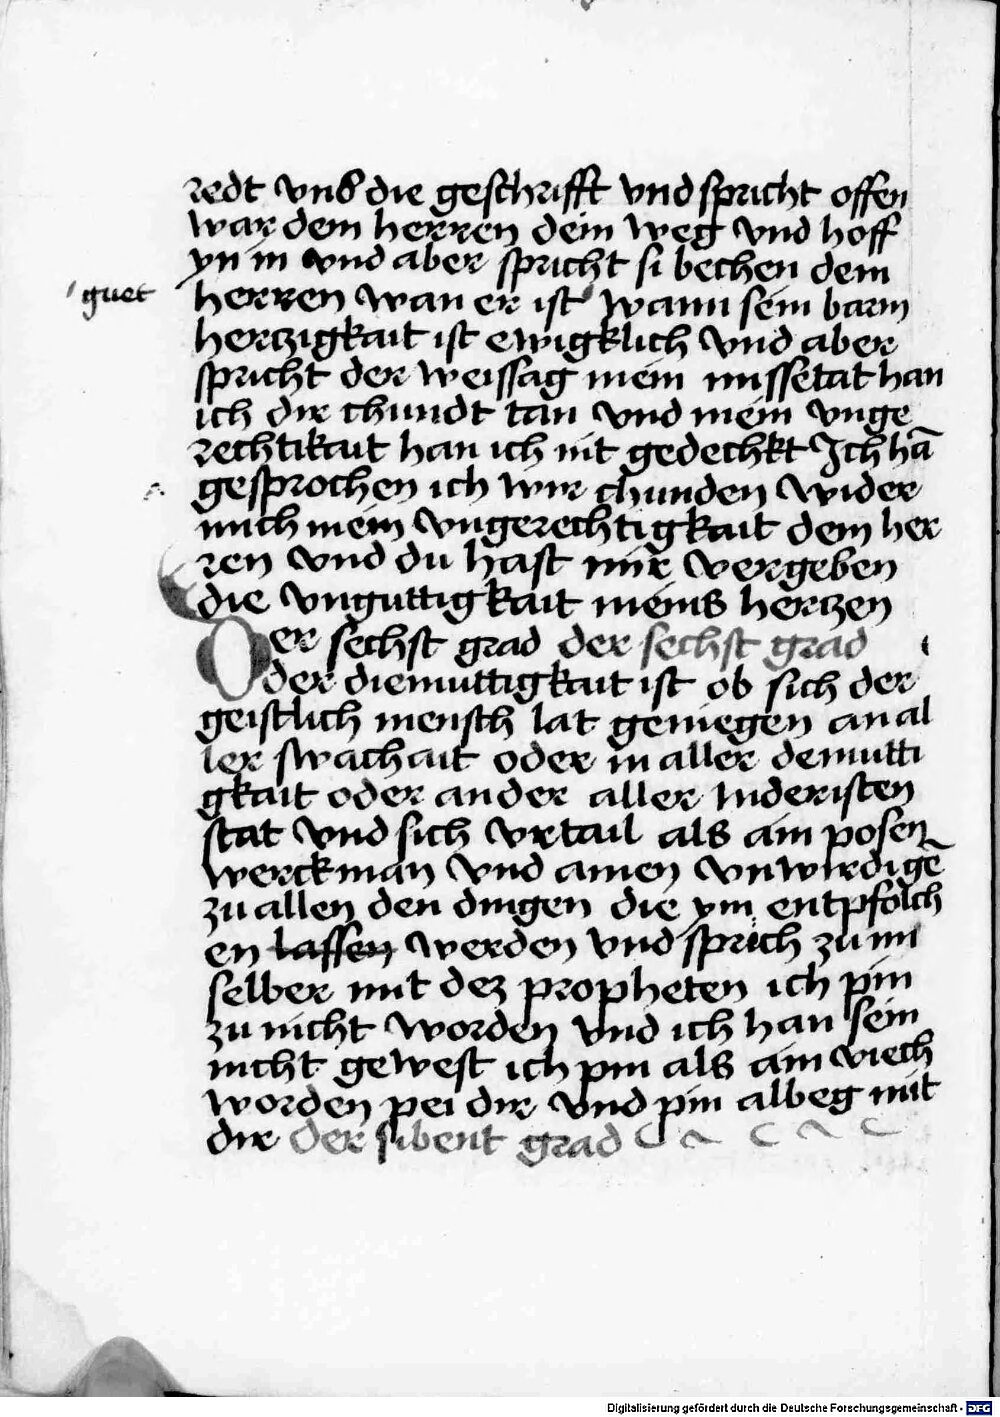 redt vnß die geschrifft vnd spricht offen
war dem herren dein weg vnd hoff
yn in vnd aber spricht si bechen dem
guet herren wan er ist wann sein barm
hertzigkait ist ewigklich vnd aber
spricht der weissag mein missetat han
ich dir chundt tan vnd mein vnge
rechtikait han ich nit gedechkt Ich hā
gesprochen ich wir chunden wider
mich mein vngerechtigkait dem her
ren vnd du hast mir vergeben
die vnguttigkait meins hertzen
Der sechst grad der sechst grad
der diemuttigkait ist ob sich der
geistlich mensch lat geniegen an al
ler swachait oder in aller demutti
gkait oder an der aller nideristen
stat vnd sich vrtail als ain posen
werckman vnd ainen vnwirdigē
zu allen den dingen die ym entpfolch
en lassen werden vnd sprich zu im
selber mit dez propheten ich pin
zu nicht worden vnd ich han sein
nicht gewest ich pin als ain viech
worden pei dir vnd pin albeg mit
dir der sibent grad
Digitalisierung gefördert durch die Deutsche Forschungsgemeinschaft - DFG